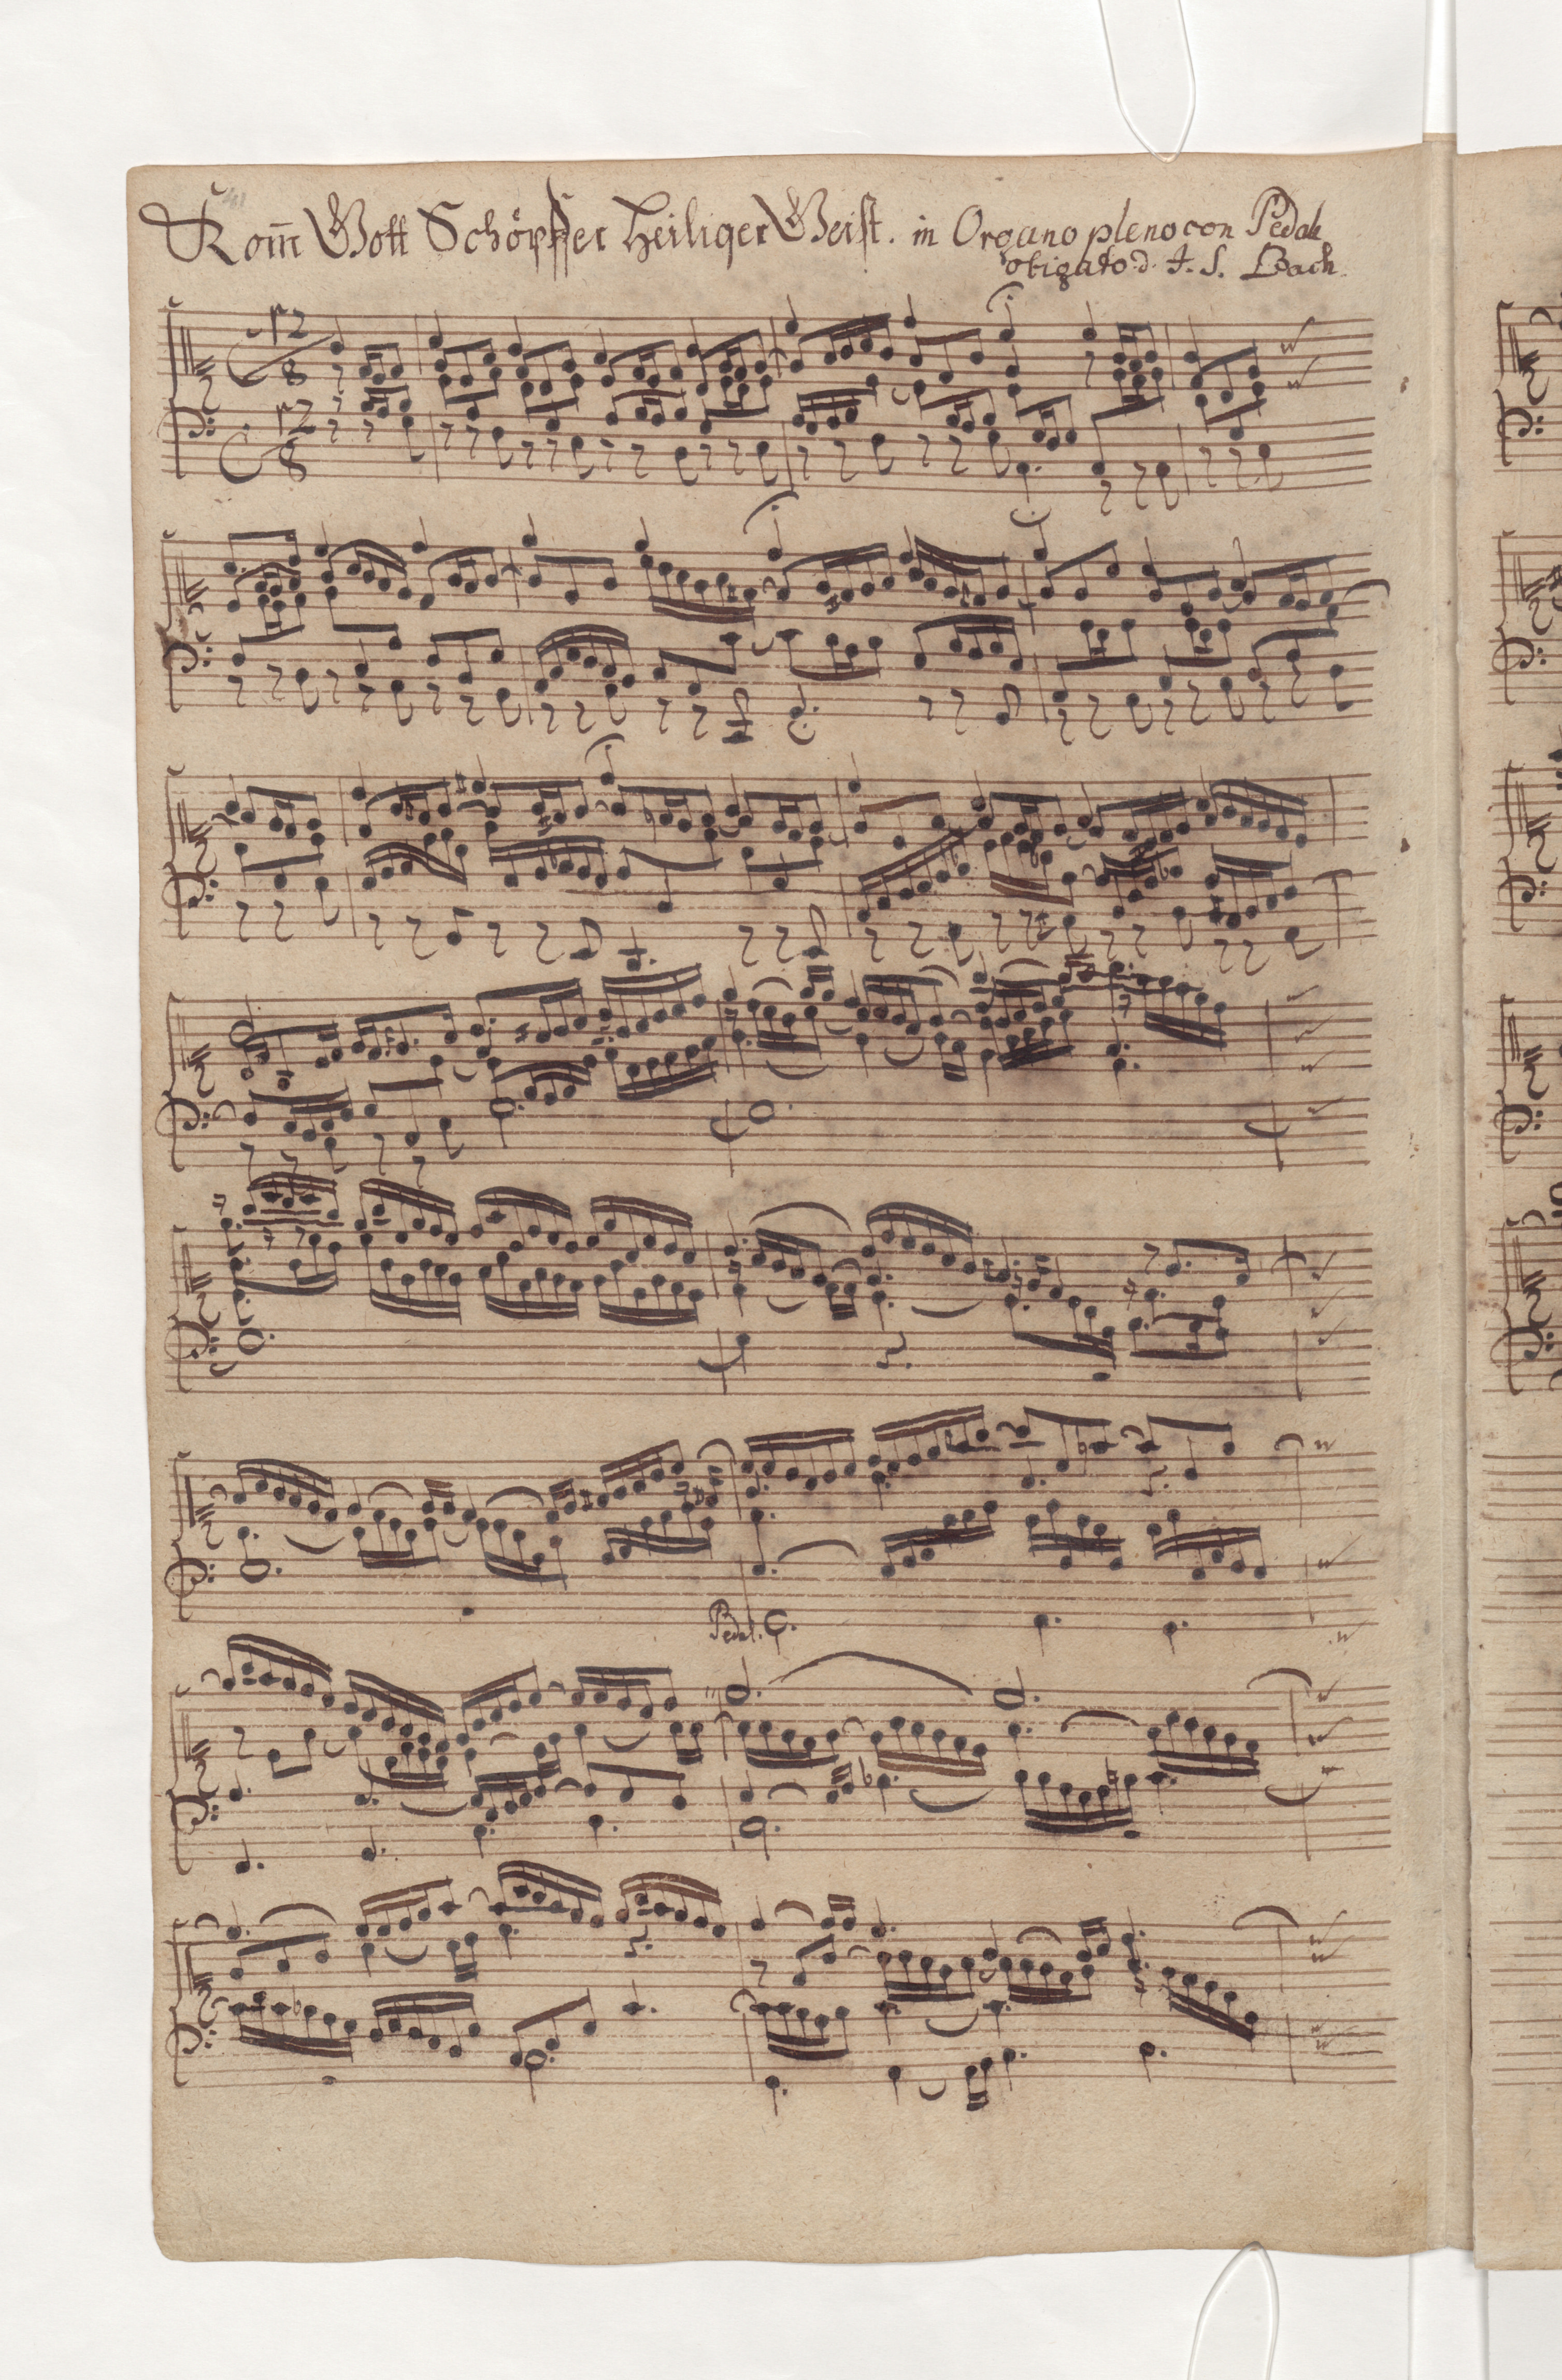 Kom̄ Gott Schöpffer Heiliger Geist. in Organo pleno con Pedale
obligato d. J. S. Bach
12
8
12
8
Pedal.